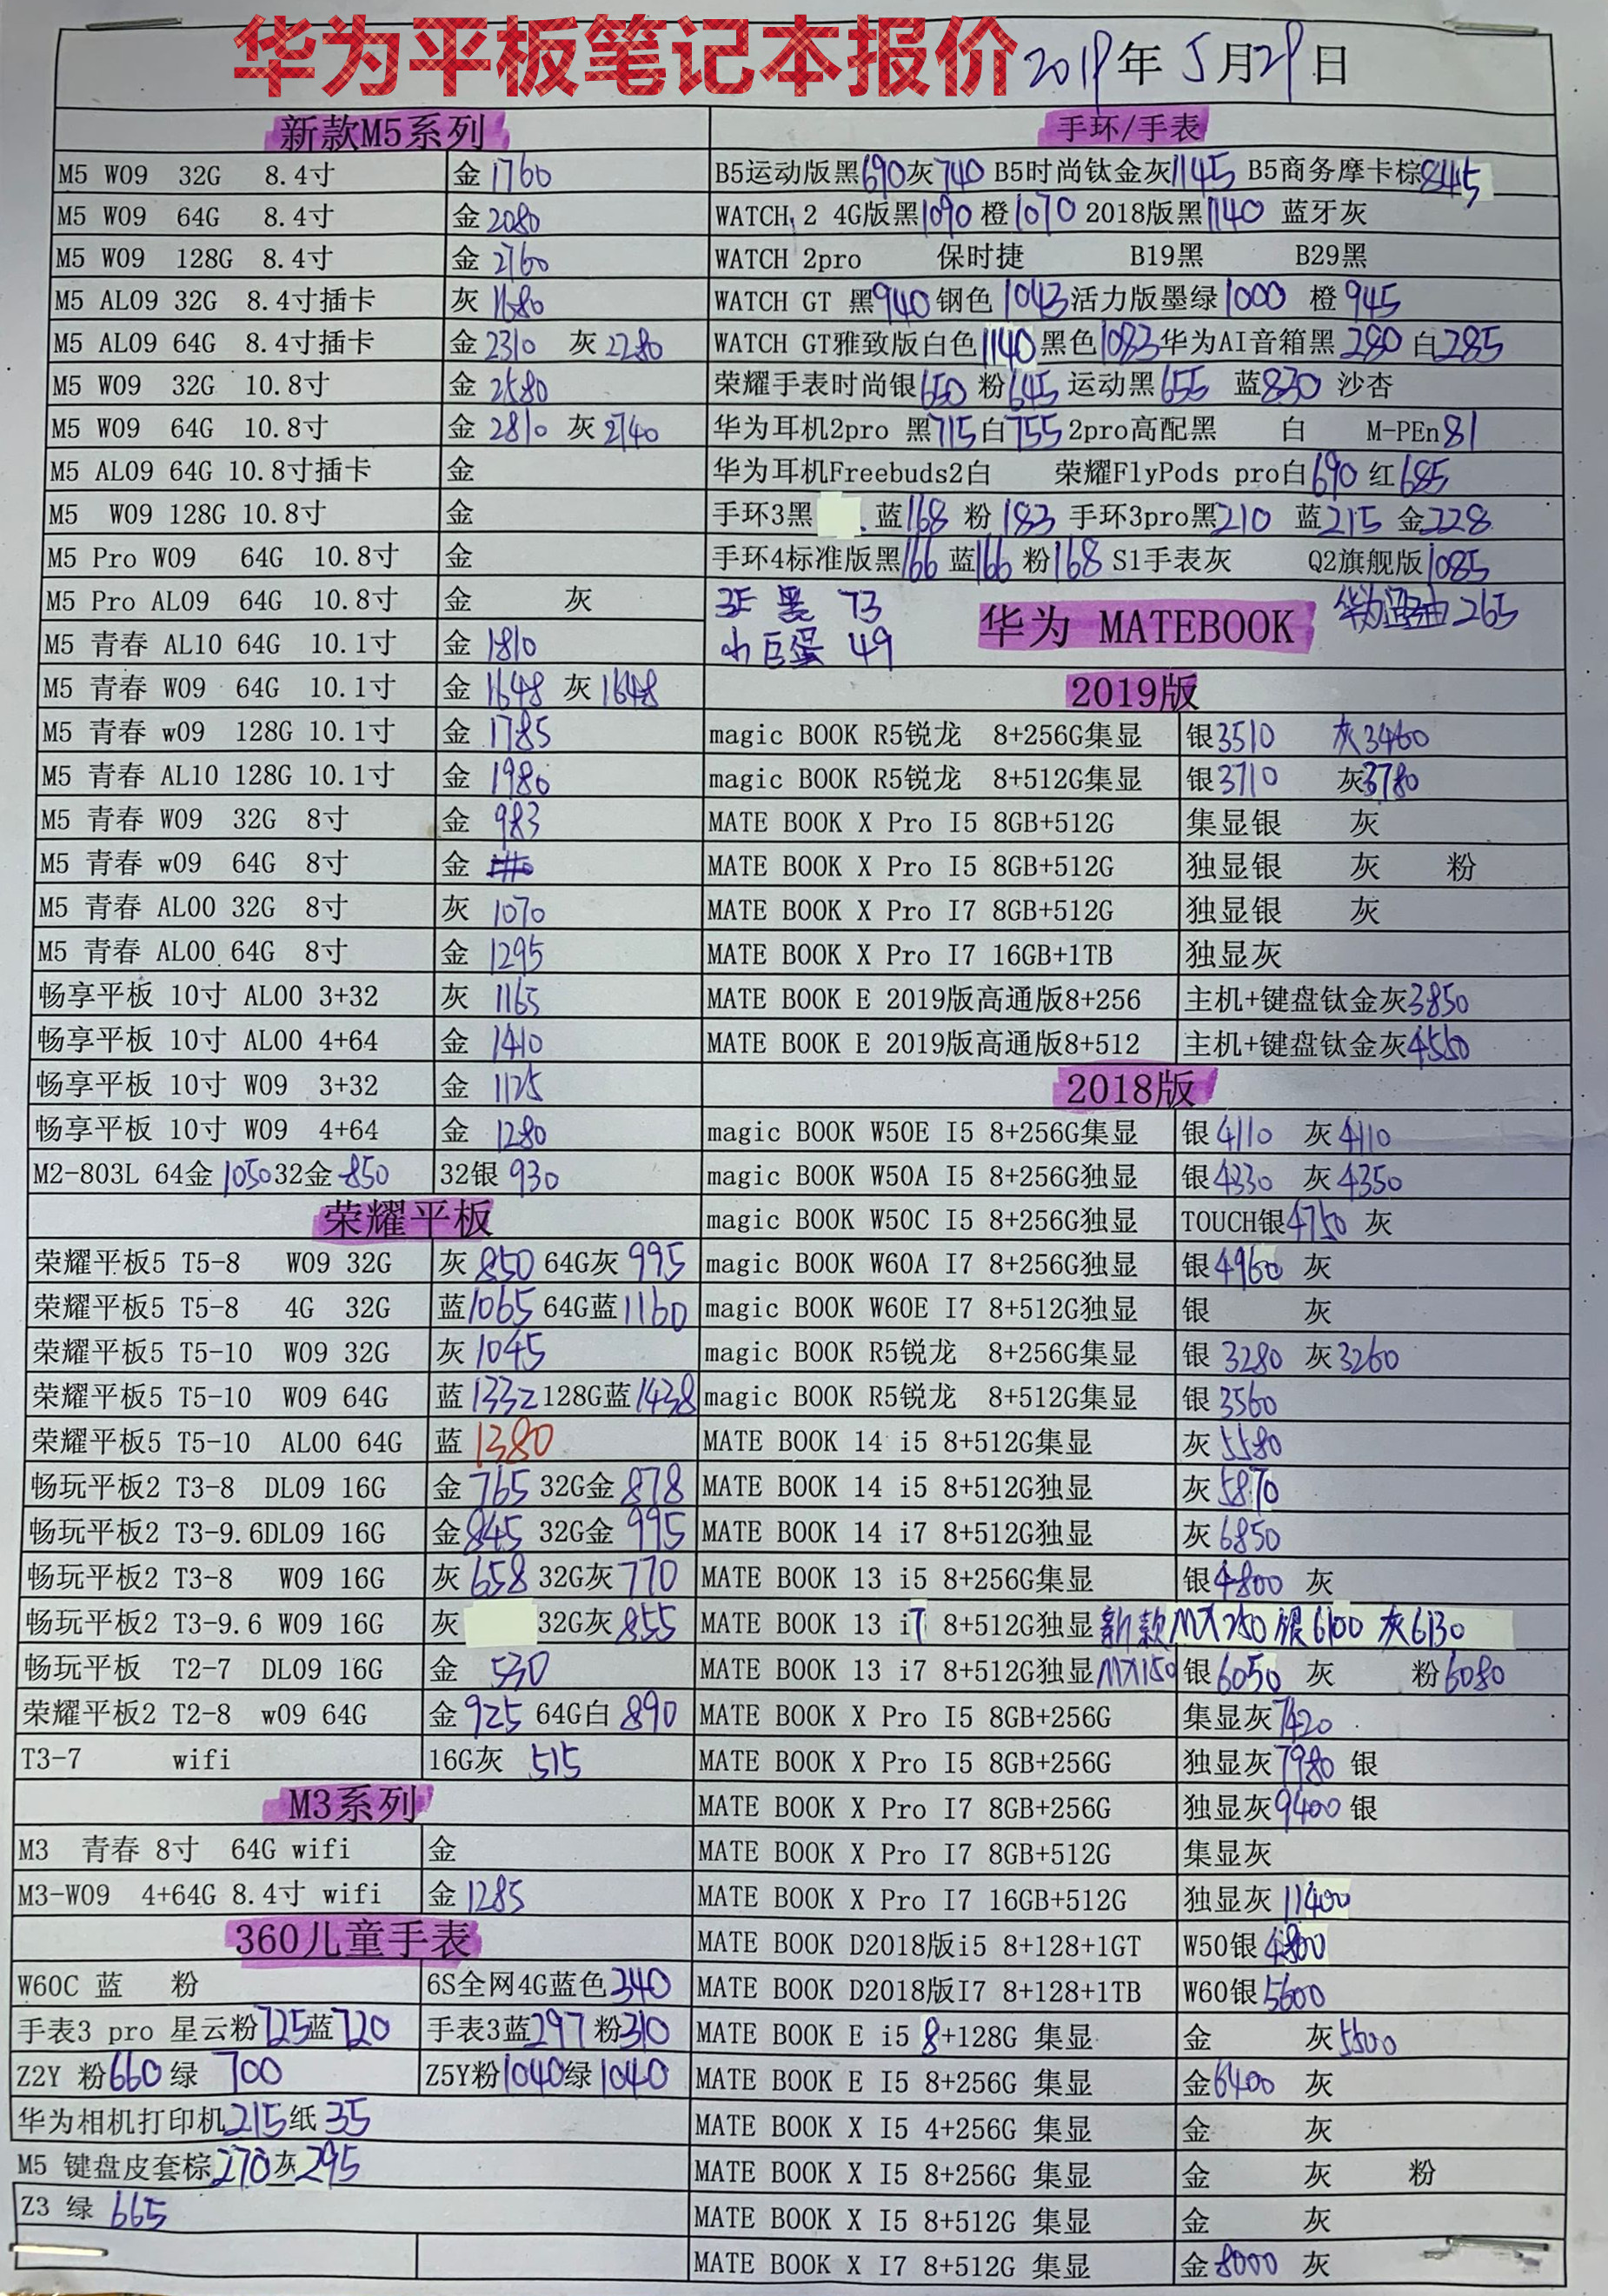 华为平板笔记本报价 2019年5月29日
新款M5系列
M5 W09 32G 8.4寸 金 1760
M5 W09 64G 8.4寸 金 2080
M5 W09 128G 8.4寸 金 2760
M5 AL09 32G 8.4寸插卡 灰 1680
M5 AL09 64G 8.4寸插卡 金 2310 灰 2280
M5 W09 32G 10.8寸 金 2580
M5 W09 64G 10.8寸 金 2810 灰 2740
M5 AL09 64G 10.8寸插卡 金
M5 W09 128G 10.8寸 金
M5 Pro W09 64G 10.8寸 金
M5 Pro AL09 64G 10.8寸 金 灰
M5 青春 AL10 64G 10.1寸 金 1810
M5 青春 W09 64G 10.1寸 金 1648 灰 1648
M5 青春 w09 128G 10.1寸 金 1785
M5 青春 AL10 128G 10.1寸 金 1980
M5 青春 W09 32G 8寸 金 983
M5 青春 w09 64G 8寸 金
M5 青春 AL00 32G 8寸 灰 1070
M5 青春 AL00 64G 8寸 金 1295
畅享平板 10寸 AL00 3+32 灰 1165
畅享平板 10寸 AL00 4+64 金 1410
畅享平板 10寸 W09 3+32 金 1125
畅享平板 10寸 W09 4+64 金 1280
M2-803L 64金 1050 32金 850 32银 930
荣耀平板
荣耀平板5 T5-8 W09 32G 灰 850 64G灰 995
荣耀平板5 T5-8 4G 32G 蓝 1065 64G蓝 1160
荣耀平板5 T5-10 W09 32G 灰 1045
荣耀平板5 T5-10 W09 64G 蓝 1332 128G蓝 1438
荣耀平板5 T5-10 AL00 64G 蓝 1380
畅玩平板2 T3-8 DL09 16G 金 765 32G金 878
畅玩平板2 T3-9.6DL09 16G 金 845 32G金 995
畅玩平板2 T3-8 W09 16G 灰 658 32G灰 770
畅玩平板2 T3-9.6 W09 16G 灰 32G灰 855
畅玩平板 T2-7 DL09 16G 金 530
荣耀平板2 T2-8 w09 64G 金 925 64G白 890
T3-7 wifi 16G灰 515
M3系列
M3 青春 8寸 64G wifi 金
M3-W09 4+64G 8.4寸 wifi 金 1285
360儿童手表
W60C 蓝 粉 6S全网4G蓝色 340
手表3 pro 星云粉 725 蓝 720 手表3蓝 297 粉 310
Z2Y 粉 660 绿 700 Z5Y粉 1040 绿 1040
华为相机打印机 215 纸 35
M5 键盘皮套棕 270 灰 295
Z3 绿 665
手环/手表
B5运动版黑 690 灰 740 B5时尚钛金灰 1145 B5商务摩卡棕 845
WATCH 2 4G版黑 1090 橙 1070 2018版黑 1140 蓝牙灰
WATCH 2pro 保时捷 B19黑 B29黑
WATCH GT 黑 940 钢色 1043 活力版墨绿 1000 橙 945
WATCH GT雅致版白色 1140 黑色 1083 华为AI音箱黑 280 白 285
荣耀手表时尚银 650 粉 645 运动黑 655 蓝 830 沙杏
华为耳机2pro 黑 715 白 755 2pro高配黑 白 M-PEn 81
华为耳机Freebuds2白 荣耀FlyPods pro白 690 红 685
手环3黑 蓝 168 粉 183 手环3pro黑 210 蓝 215 金 228
手环4标准版黑 166 蓝 166 粉 168 S1手表灰 Q2旗舰版 1085
3F 黑 73
小巨蛋 49
华为 MATEBOOK 华为 265
2019版
magic BOOK R5锐龙 8+256G集显 银 3510 灰 3460
magic BOOK R5锐龙 8+512G集显 银 3710 灰 3780
MATE BOOK X Pro I5 8GB+512G 集显银 灰
MATE BOOK X Pro I5 8GB+512G 独显银 灰 粉
MATE BOOK X Pro I7 8GB+512G 独显银 灰
MATE BOOK X Pro I7 16GB+1TB 独显灰
MATE BOOK E 2019版高通版8+256 主机+键盘钛金灰 3850
MATE BOOK E 2019版高通版8+512 主机+键盘钛金灰 4550
2018版
magic BOOK W50E I5 8+256G集显 银 4110 灰 4110
magic BOOK W50A I5 8+256G独显 银 4330 灰 4350
magic BOOK W50C I5 8+256G独显 TOUCH银 4750 灰
magic BOOK W60A I7 8+256G独显 银 4960 灰
magic BOOK W60E I7 8+512G独显 银 灰
magic BOOK R5锐龙 8+256G集显 银 3280 灰 3260
magic BOOK R5锐龙 8+512G集显 银 3560
MATE BOOK 14 i5 8+512G集显 灰 5580
MATE BOOK 14 i5 8+512G独显 灰 5870
MATE BOOK 14 i7 8+512G独显 灰 6850
MATE BOOK 13 i5 8+256G集显 银 4800 灰
MATE BOOK 13 i7 8+512G独显 新款MX250 银 6100 灰 6130
MATE BOOK 13 i7 8+512G独显 MX150 银 6050 灰 粉 6080
MATE BOOK X Pro I5 8GB+256G 集显灰 7420
MATE BOOK X Pro I5 8GB+256G 独显灰 7980 银
MATE BOOK X Pro I7 8GB+256G 独显灰 9400 银
MATE BOOK X Pro I7 8GB+512G 集显灰
MATE BOOK X Pro I7 16GB+512G 独显灰 11400
MATE BOOK D2018版i5 8+128+1GT W50银 4800
MATE BOOK D2018版I7 8+128+1TB W60银 5600
MATE BOOK E i5 8+128G 集显 金 灰 5500
MATE BOOK E I5 8+256G 集显 金 6400 灰
MATE BOOK X I5 4+256G 集显 金 灰
MATE BOOK X I5 8+256G 集显 金 灰 粉
MATE BOOK X I5 8+512G 集显 金 灰
MATE BOOK X I7 8+512G 集显 金 8000 灰